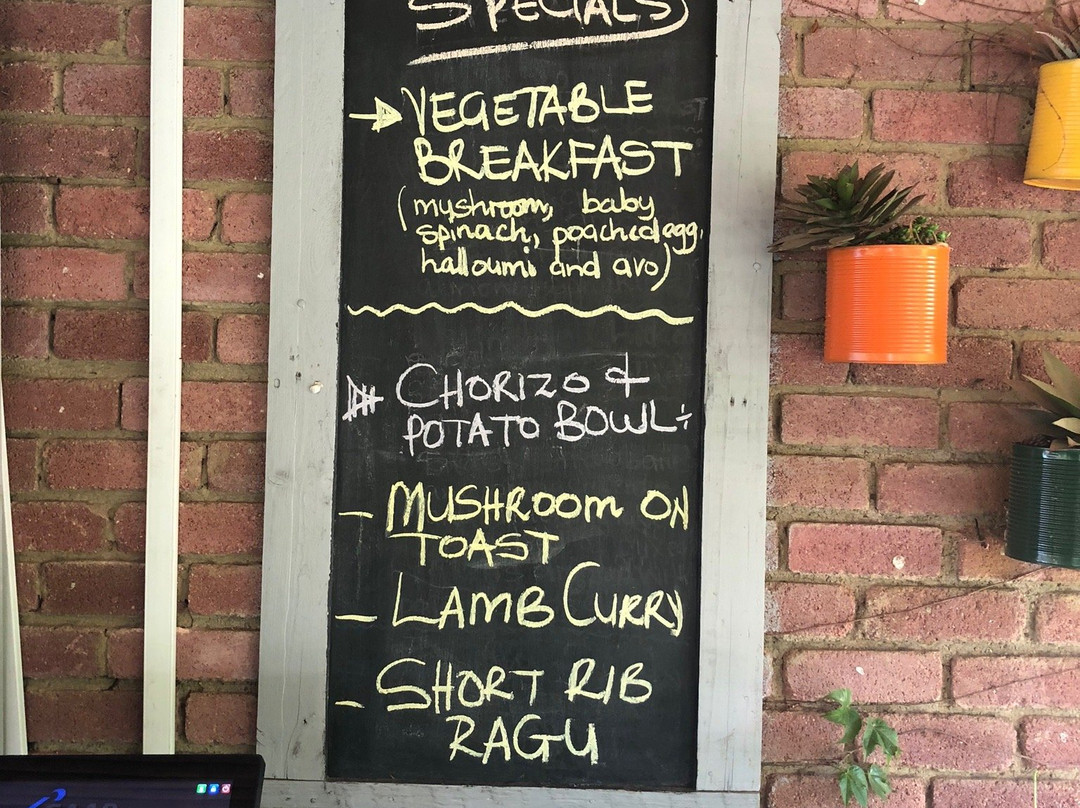 SPECIALS
VEGETABLE
BREAKFAST
(mushroom, baby
spinach, poached egg,
halloumi and avo)
CHORIZO &
POTATO BOWL
- MUSHROOM ON
TOAST
- LAMB CURRY
- SHORT RIB
RAGU